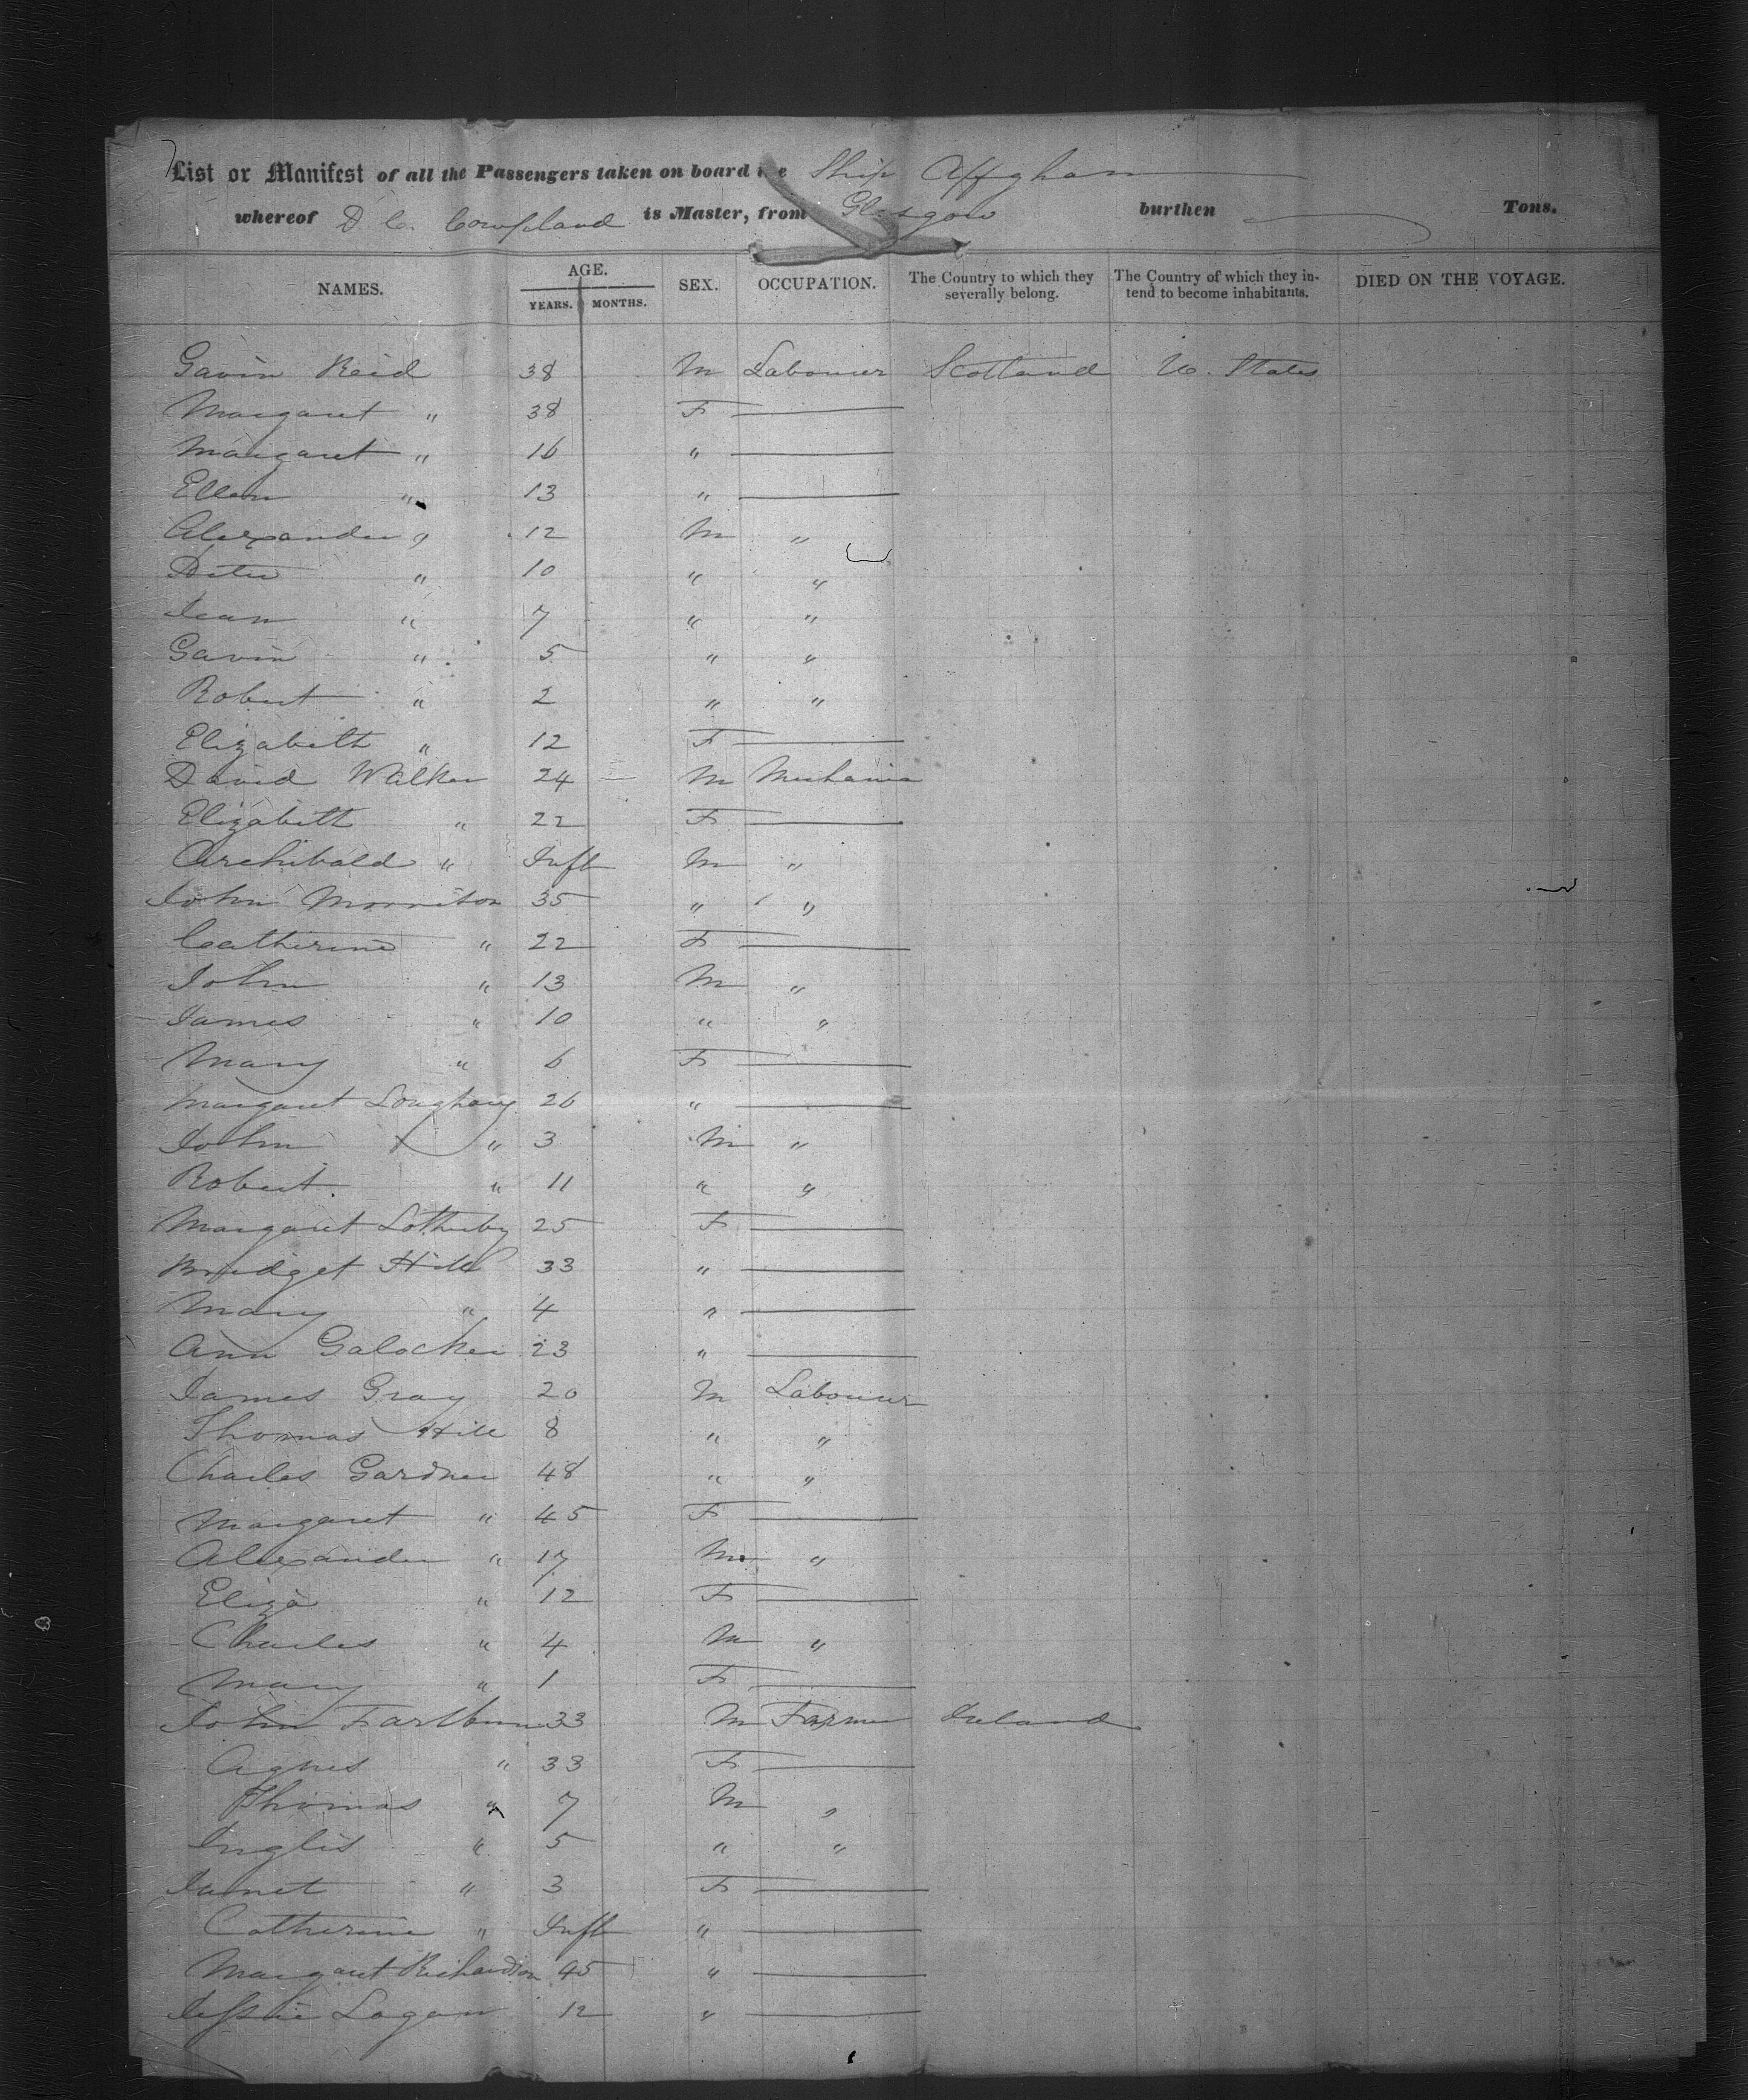 List or Manifest of all the Passengers taken on board the Ship Affghan
whereof D C. Coupland is Master, from Glasgow burthen Tons.
NAMES. AGE. YEARS. MONTHS. SEX. OCCUPATION. The Country to which they severally belong. The Country of which they intend to become inhabitants. DIED ON THE VOYAGE.
Gavin Reid 38 M Labourer Scotland U. States
Margaret " 38 F
Margaret " 16 "
Ellen " 13 "
Alexander " 12 M "
Peter " 10 " "
Jean " 7 " "
Gavin " 5 " "
Robert " 2 " "
Elizabeth " 12 F
David Walker 24 M Mechanic
Elizabeth " 22 F
Archibald " Inft M "
John Morrison 35 " "
Catherine " 22 F
John " 13 M "
James " 10 " "
Mary " 6 F
Margaret 26 "
John " 3 M "
Robert " 11 " "
Margaret 25 F
Bridget Hill 33 "
Mary " 4 "
Ann Galocher 23 "
James Gray 20 M Labourer
Thomas Hill 8 " "
Charles Gardner 48 " "
Margaret " 45 F
Alexander " 17 M "
Eliza " 12 F
Charles " 4 M "
Mary " 1 F
John 33 M Farmer Ireland
Agnes " 33 F
Thomas " 7 M "
Inglis " 5 " "
Janet " 3 F
Catherine " Inft "
Margaret Richardson 45 "
Jessie Logan 12 "